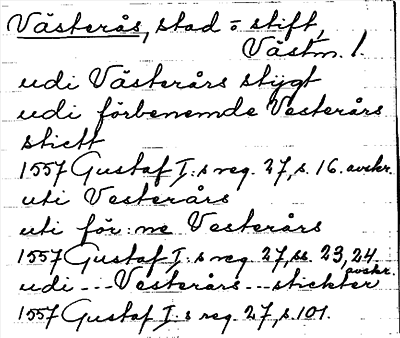 Västerås, stad o. stift,
Västm. l.
udi Västerårs stygt
udi förbenemde Vesterårs
stictt
1557 Gustaf I:s reg. 27, s. 16. avskr.
uti Vesterårs
uti för:ne Vesterårs
1557 Gustaf I:s reg. 27, ss. 23, 24
avskr.
udi --- Vesterårs -- stickter
1557 Gustaf I:s reg. 27, s. 101.